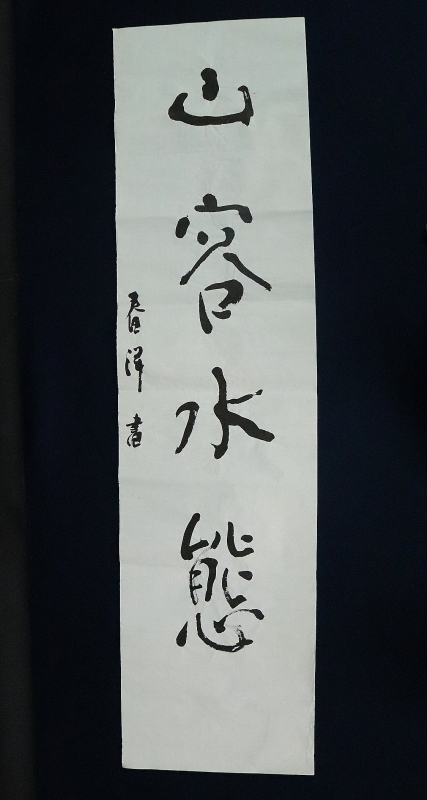 山容水態
春洋書